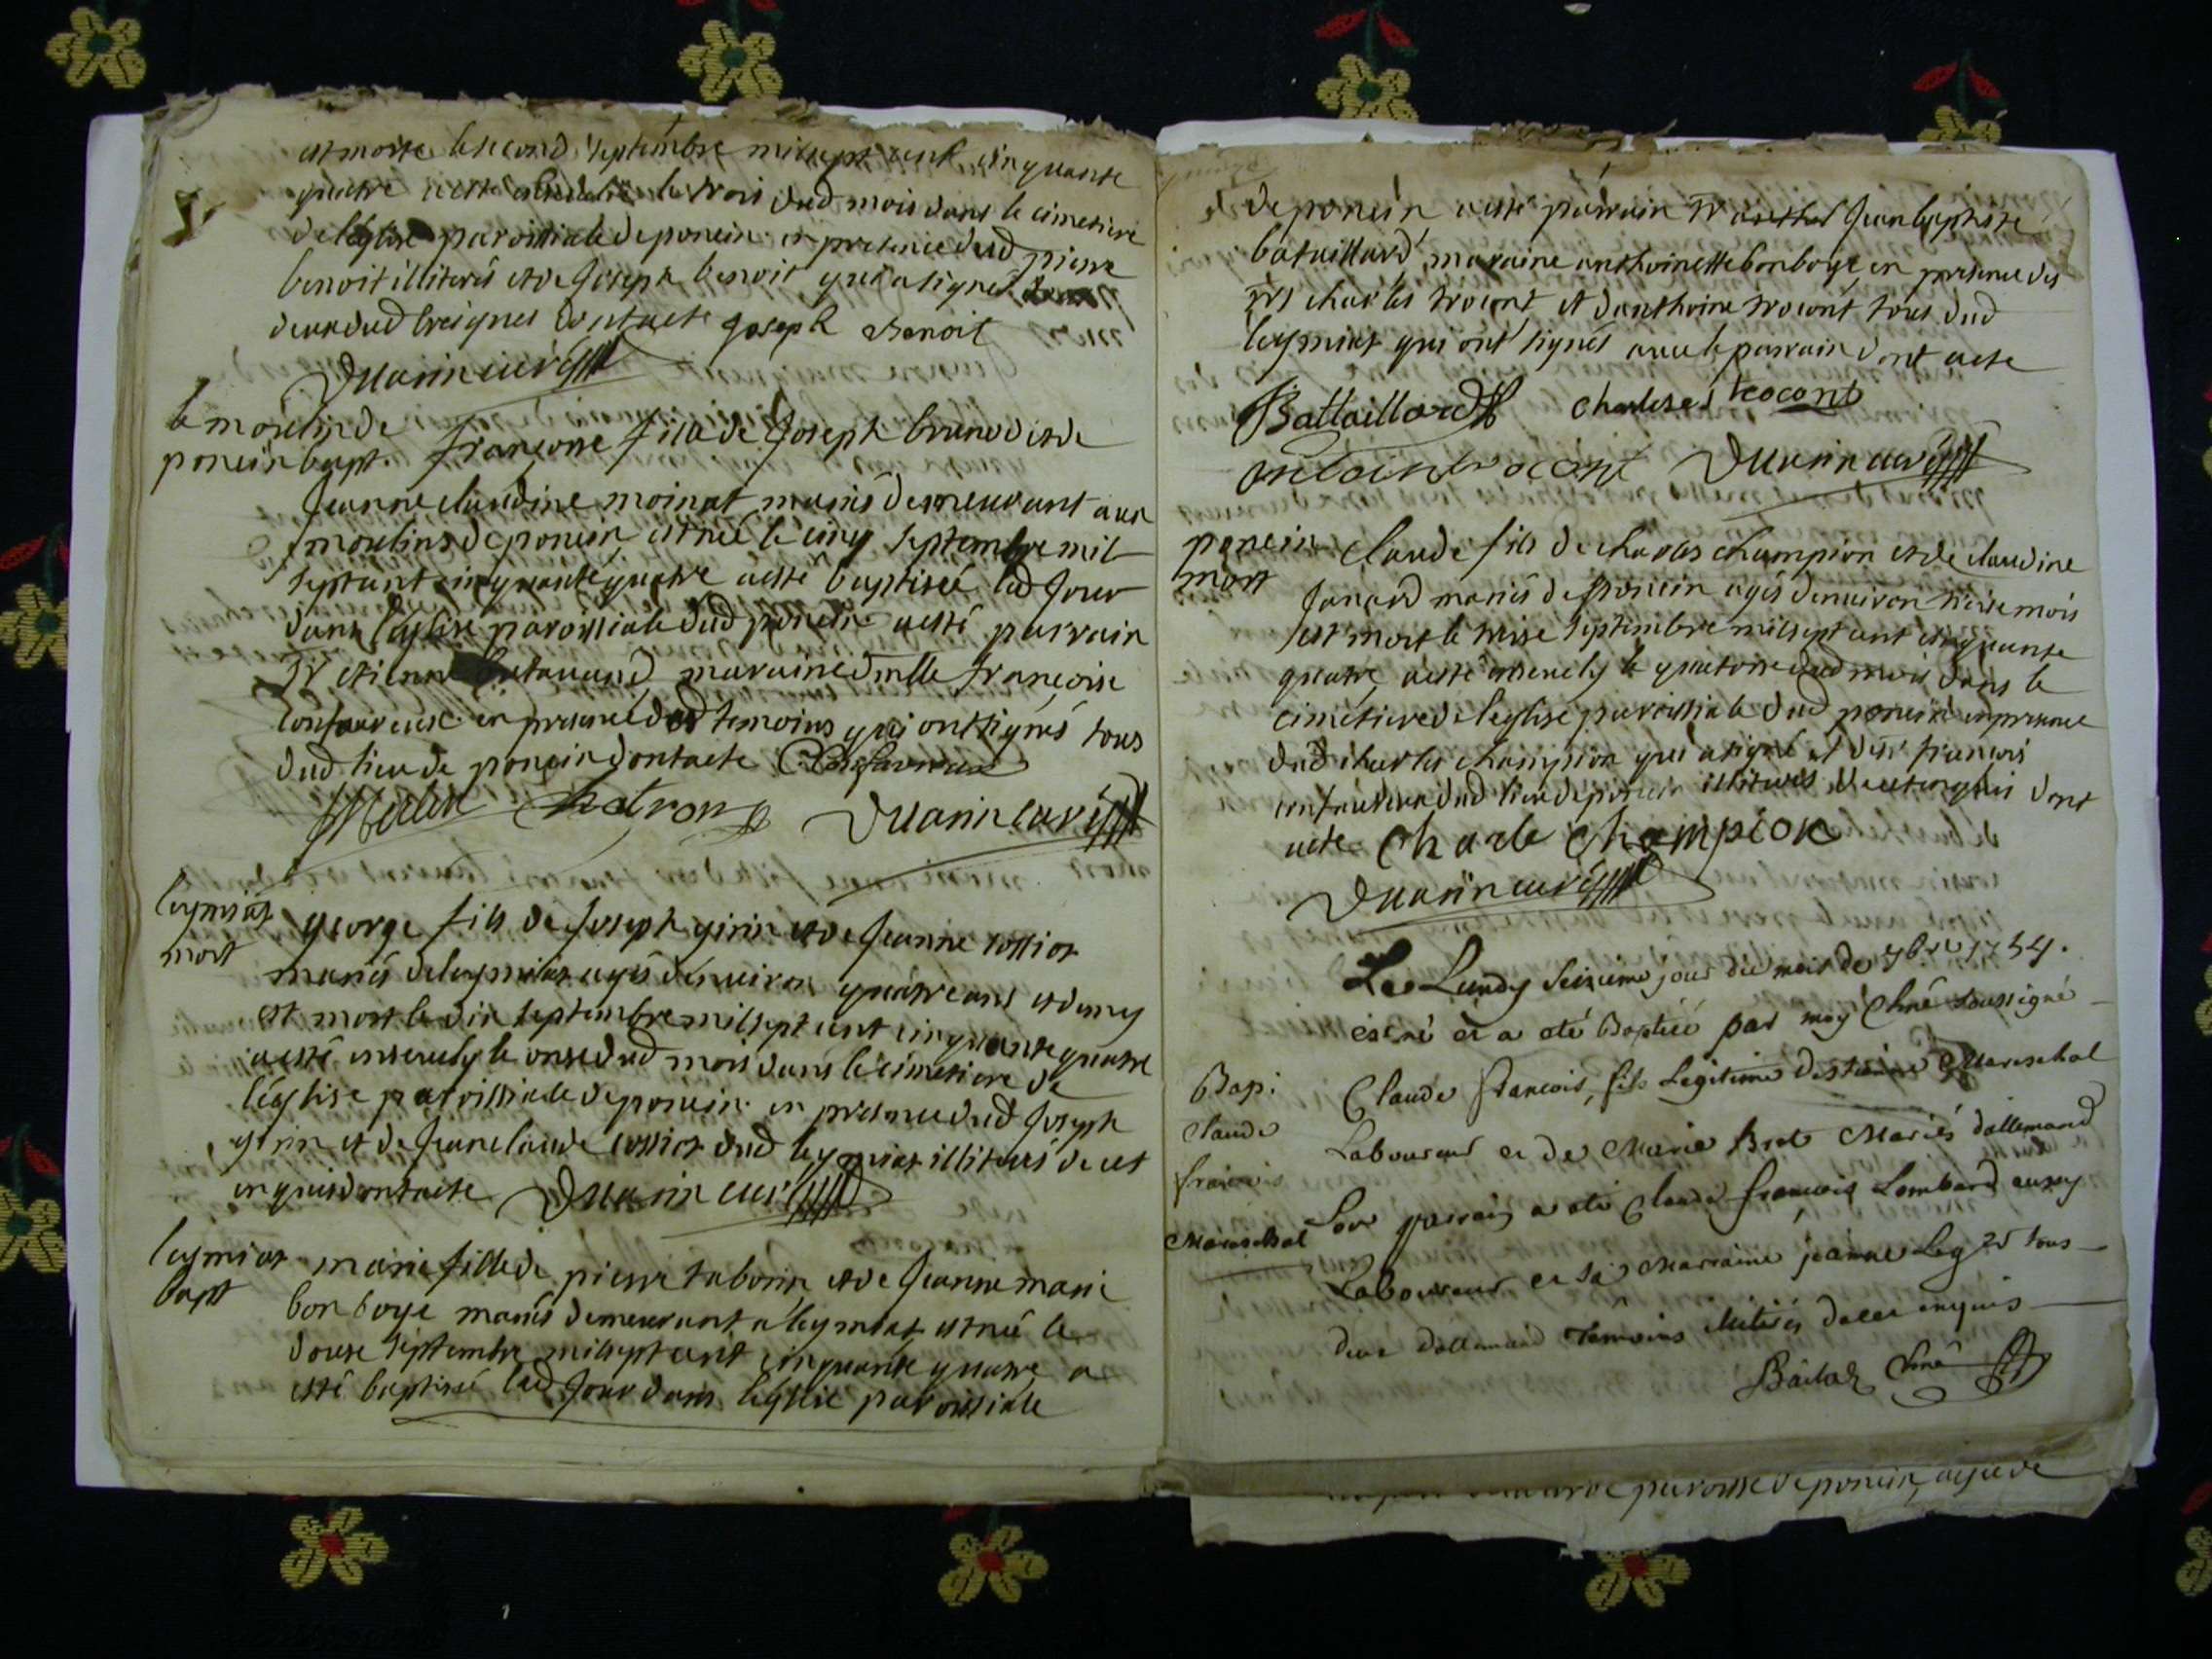 est morte le second septembre mil sept cent cinquante
quatre a esté le trois dud mois dans le cimetiere
de léglise paroissiale de poncin en presence dud pierre
benoit illiterés et de Joseph benoit qui a signés
dud breignes dont acte Joseph Benoit
Duarin curé
le moulin de
poncin bapt. françoise fille de Joseph brunod et de
Jeanne claudine moinat mariés demeurant aux
moulins de poncin est née le cinq septembre mil
sept cent cinquante quatre a esté baptisée led Jour
dans l'eglise paroissiale dud poncin a esté parrain
Sr etienne maraine dmlle françoise
en presence des temoins qui ont signés tous
dud lieu de poncin dont acte
Chatron Duarin curé
leymiat
mort
george fils de Joseph girin et de Jeanne cossiat
mariés de leymiat agés d'enuiron quatre ans et demy
est mort le dix septembre mil sept cent cinquante quatre
a esté enseuely le onze dud mois dans le cimetiere de
l'église paroissiale de poncin en presence dud Joseph
girin et de Jean claude cossiat dud leymiat illiterés de ce
enquis dont acte Duarin curé
leymiat
bapt
marie fille de pierre taborin et de Jeanne marie
bonboye mariés demeurant a leymiat est née le
douze septembre mil sept cent cinquante quatre a
esté baptisée led Jour dans léglise paroissiale
de poncin a esté parrain Sr Jean baptiste
bataillard, maraine anthoinette bonboye, en presence des
Srs charles trocont et d'anthoine trocont tous dud
leymiat qui ont signés auec le parrain dont acte
Battaillard Charles trocont
Antoin trocont Duarin curé
poncin
mort
claude fils de charles champion et de claudine
Janard mariés de poncin agés d'enuiron treise mois
est mort le treise septembre mil sept cent cinquante
quatre, a esté enseuely le quatorse dud mois dans le
cimetiere de leglise paroissiale dud poncin en presence
dud charles champion qui a signé et de Sr françois
dud lieu de poncin illiterés de ce enquis dont
acte Charle Champion
Duarin curé
Le Lundy Seizieme jour du mois de 7bre 1754.
est né et a eté Baptisé par moy Curé soussigné
Bapt:
claude
françois
Mareschal
Claude francois, fils Legitime d'estienne Mareschal
Laboureur et de Marie Brot Mariés d'allemand
Son parrain a eté Claude francois Lombard aussy
Laboureur et sa Marraine jeanne tous
deux d'allemand Temoins illiterés de ce enquis
Curé
paroisse de poncin, agée de